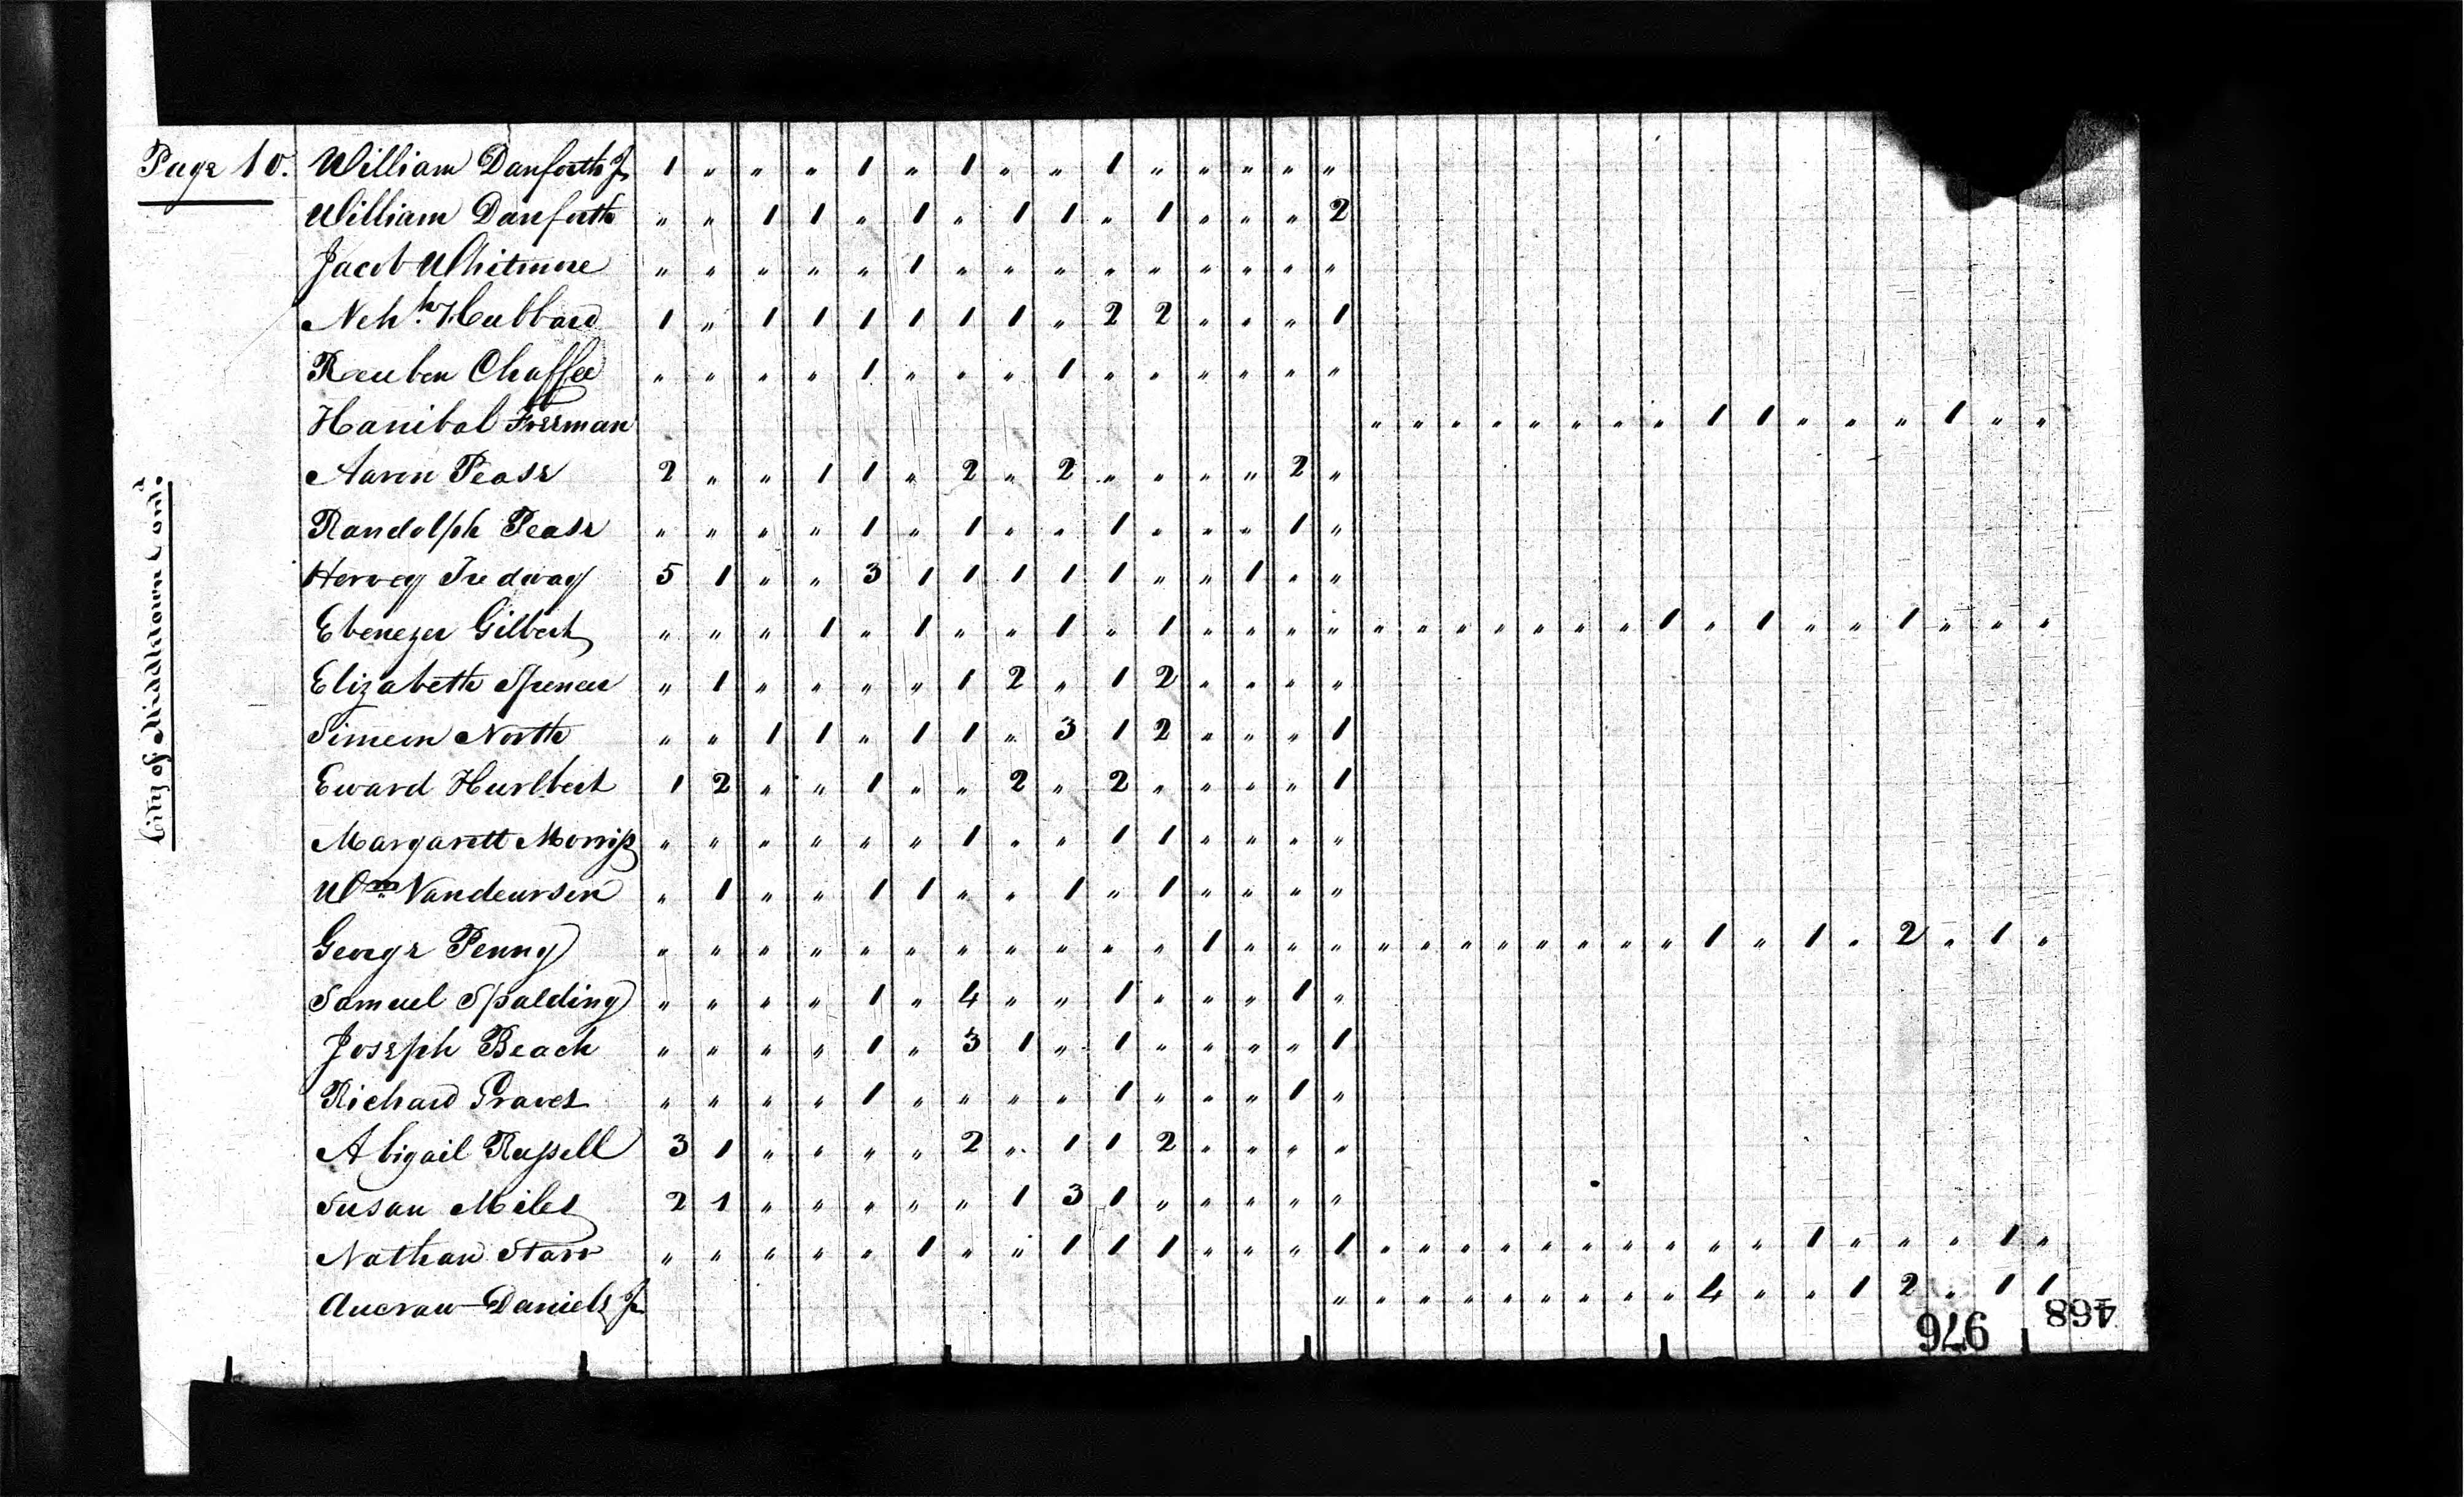 Page 10. William Danforth Jr 1 " " " " 1 " 1 " " 1 " " " " "
William Danforth " " 1 1 " 1 " 1 1 " 1 " " " 2
Jacob Whitmore " " " " " 1 " " " " " " " " "
Neh.h Hubbard 1 " 1 1 1 1 1 1 " 2 2 " " " 1
Reuben Chaffee " " " " 1 " " " 1 " " " " " "
Hanibal Freeman " " " " " " " " 1 1 " " " 1 " "
Aaron Pease 2 " " 1 1 " 2 " 2 " " " " 2 "
Randolph Pease " " " " 1 " 1 " " 1 " " " 1 "
Hervey Tredway 5 1 " " 3 1 1 1 1 1 " " 1 " "
Ebenezer Gilbert " " " 1 " 1 " " 1 " 1 " " " " " " " " " " " 1 " 1 " " 1 " " "
Elizabeth Spencer " 1 " " " " 1 2 " 1 2 " " " "
Simeon North " " 1 1 " 1 1 " 3 1 2 " " " 1
Eward Hurlbert 1 2 " " 1 " " 2 " 2 " " " " 1
Margarett Morriss " " " " " " 1 " " 1 1 " " " "
Wm Vandeursen " 1 " " 1 1 " " 1 " 1 " " " "
George Penny " " " " " " " " " " " 1 " " " " " " " " " " " 1 " 1 " 2 " 1 "
Samuel Spalding " " " " 1 " 4 " " 1 " " " 1 "
Joseph Beach " " " " 1 " 3 1 " 1 " " " " 1
Richard Graves " " " " 1 " " " " 1 " " " 1 "
Abigail Russell 3 1 " " " " 2 " 1 1 2 " " " "
Susan Miles 2 1 " " " " " 1 3 1 " " " " "
Nathan Starr " " " " " 1 " " 1 1 1 " " " 1 " " " " " " " " " " 1 " " " 1 "
Daniels Jr " " " " " " " " " 4 " " 1 2 " 1 1
City of Middletown Contd.
976
468